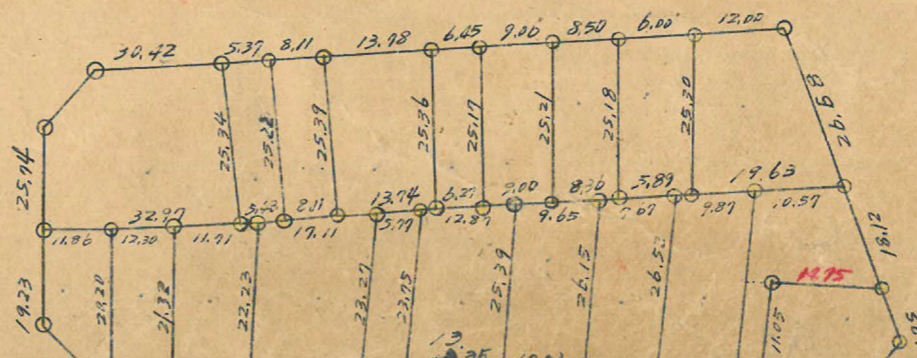 30.42 5.37 8.11 13.78 6.45 9.00 8.50 6.00 12.00
25.74 25.34 25.22 25.39 25.36 25.17 25.21 25.18 25.20 26.58
32.97 5.43 8.11 13.74 6.27 9.00 8.36 5.89 19.63
11.86 12.30 11.71 17.11 5.77 12.87 9.65 7.67 9.87 10.57
19.23 21.20 21.32 22.23 23.27 23.75 25.39 26.15 26.52 18.12
14.75
11.05
13.